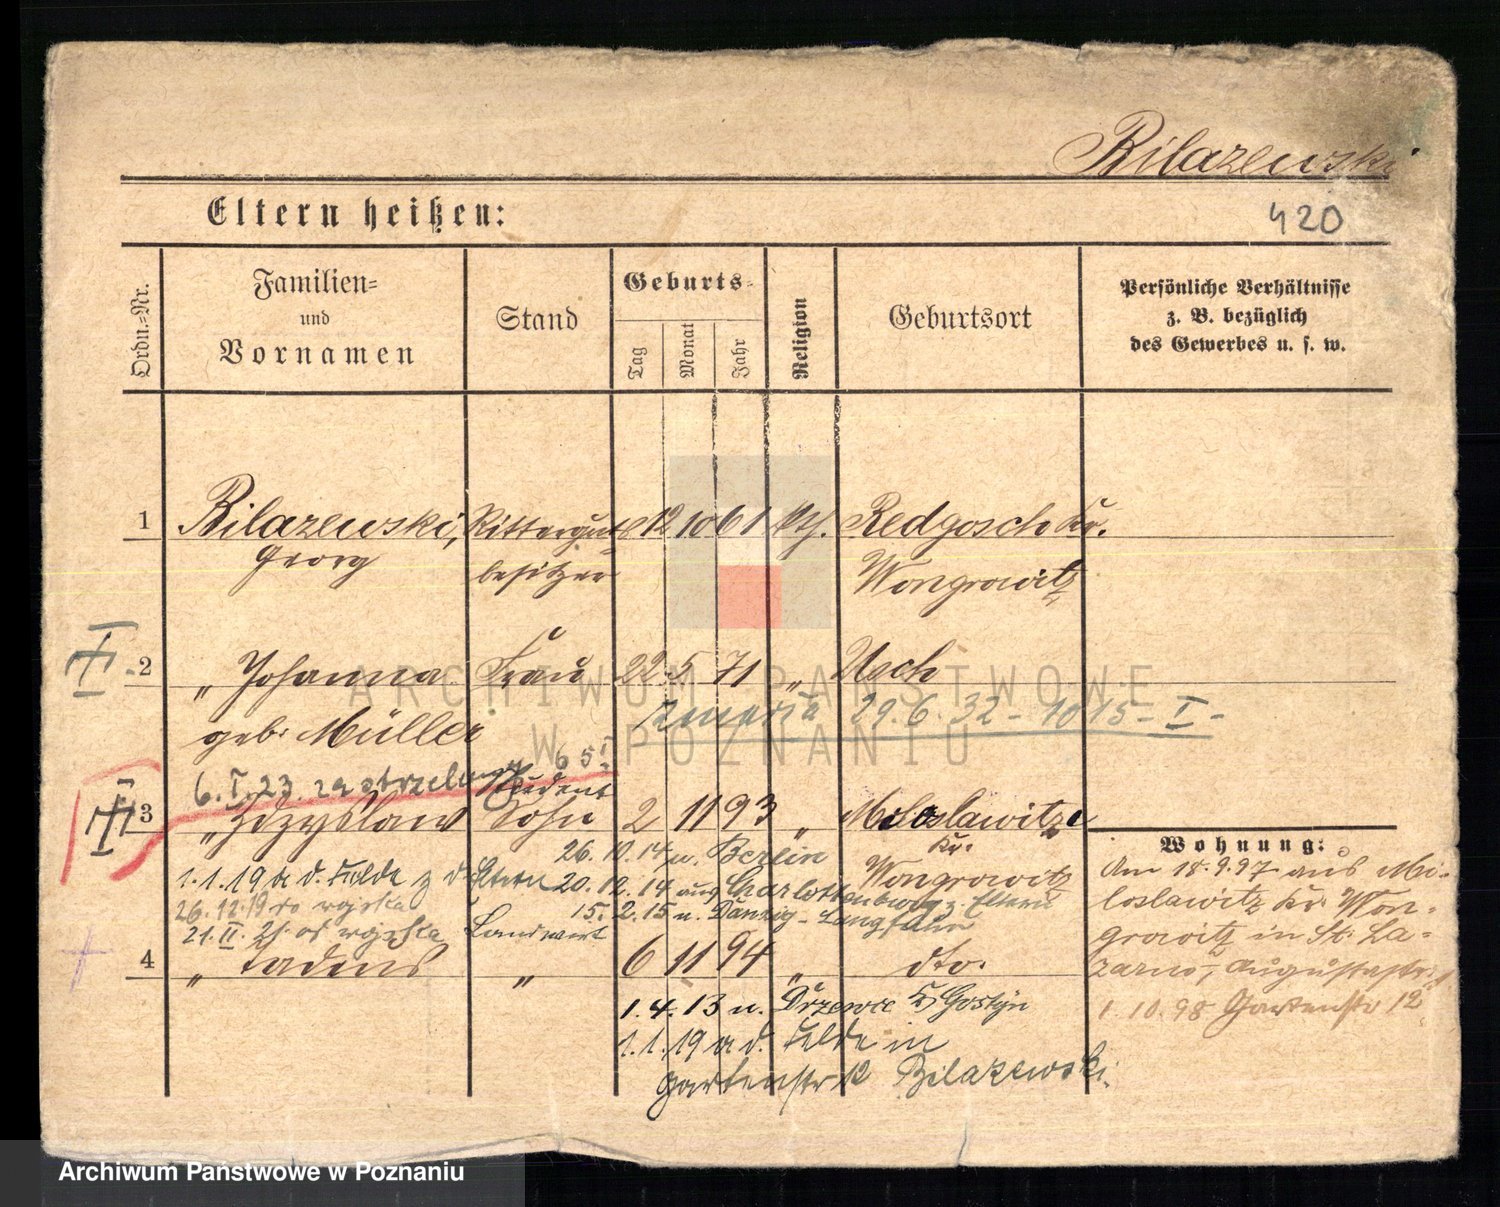 Bilazewski
Eltern heißen:
420
Ordn.-Nr.
Familien-
und
Vornamen
Stand
Geburts-
Tag
Monat
Jahr
Religion
Geburtsort
Persönliche Verhältnisse
z. B. bezüglich
des Gewerbes u. s. w.
1 Bilazewski, Ritterguts 12 10 61 kth. Redgosch Kr.
Georg besitzer Wongrowitz
2 " Johanna Frau 22 5 71 " Usch
geb. Müller
zmarła 29.6.32 - 1015 - I -
6.I.23. zastrzelony 65 I
Student
3 " Zdzyslaw Sohn 2 11 93 " Miloslawitz
Kr.
Wongrowitz
26.10.14 n. Berlin
1.1.19 a d. Felde z d. Eltern 20.12.14 aus Charlottenburg z. Eltern
26.12.19 do wojska 15.2.15 n. Danzig-Langfuhr
21.II.21. od wojska Landwirt
4 " Tadeus " 6 11 94 " dto.
1.4.13 n. Drzewce Kr Gostyn
1.1.19 a d. Felde in
Gartenstr 12 Bilazewski.
Wohnung:
Am 18.9.97 aus Mi-
loslawitz Kr. Won-
growitz in St. La-
zarus, Augustastr.
1.10.98 Gartenstr 12
ARCHIWUM PAŃSTWOWE
W POZNANIU
Archiwum Państwowe w Poznaniu